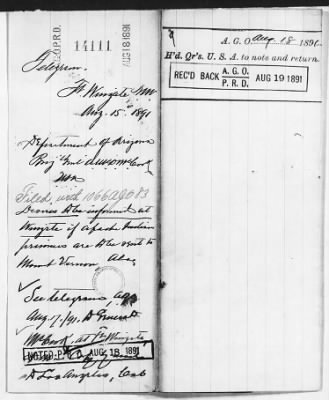 P.R.D.
14111
Telegram.
Ft. Wingate N.M.
Aug. 15" 1891
Department of Arizona
Brig. Genl McCook
USA
Filed with 10662 AGO 83
Desires to be informed at
Wingate if Apache Indian
prisoners are to be sent to
Mount Vernon Ala.
See telegrams, AGO
Aug. 17/91. to General
McCook, at Ft. Wingate
NOTED P.R.D. AUG 18 1891
to Los Angeles, Cal
A. G. O. Aug. 18 1891.
H'd. Qr's. U. S. A. to note and return.
REC'D BACK A. G. O. P. R. D. AUG 19 1891